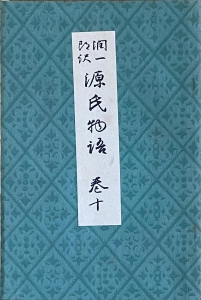 潤一郎訳
源氏物語 巻十